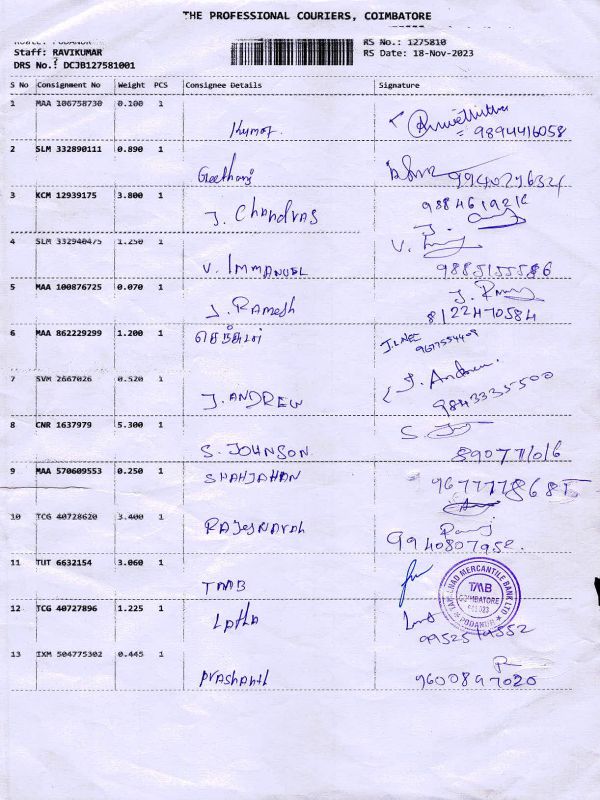 THE PROFESSIONAL COURIERS, COIMBATORE
RS No.: 1275810
Staff: RAVIKUMAR
RS Date: 18-Nov-2023
DRS No.: DCJB127581001
S No Consignment No Weight PCS Consignee Details Signature
1 MAA 106758730 0.100 1 Kumar 9894416058
2 SLM 332890111 0.890 1 9940716321
3 KCM 12939175 3.800 1 J. Chandras
4 SLM 332940475 1.250 1 V. IMMANUEL
5 MAA 100876725 0.070 1 J. Ramesh 8122470584
6 MAA 862229299 1.200 1 9677554409
7 SVM 2667026 0.520 1 J. ANDREW J. Andrew 9843335500
8 CNR 1637979 5.300 1 S. JOHNSON
9 MAA 570609553 0.250 1 SHAHJAHAN
10 TCG 40728620 3.400 1 9940807952.
11 TUT 6632154 3.060 1 TMB
TAMILNAD MERCANTILE BANK LTD
TMB
COIMBATORE
PODANUR
12 TCG 40727896 1.225 1 Latha
13 IXM 504775302 0.445 1 Prashanth 9600897020